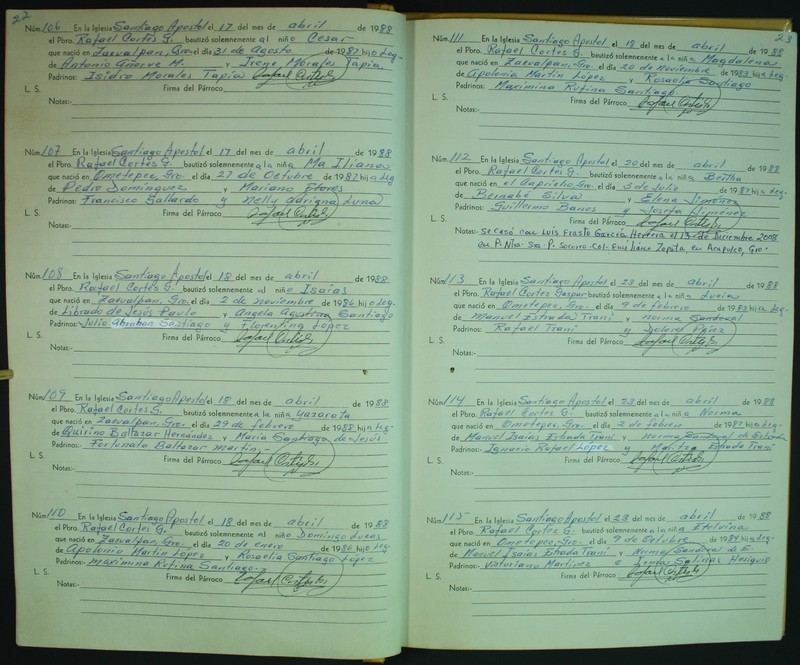 22
Núm. 106 En la Iglesia Santiago Apostol el 17 del mes de abril de 1988
el Pbro. Rafael Cortés G. bautizó solemnenente al niño Cesar
que nació en Zacualpan, Gro. el día 31 de Agosto de 1987 hijo Leg.
de Antonio Añorve M. y Irene Morales Tapia
Padrinos: Isidro Morales Tapia
L. S. Firma del Párroco
Notas:
Núm. 107 En la Iglesia Santiago Apostol el 17 del mes de abril de 1988
el Pbro. Rafael Cortés G. bautizó solemnenente a la niña Ma Iliana
que nació en Ometepec, Gro. el día 27 de Octubre de 1987 hija Leg
de Pedro Domínguez y Mariano Flores
Padrinos: Francisco Gallardo y Nelly Luna
Firma del Párroco
L. S.
Notas:
Núm. 108 En la Iglesia Santiago Apostol el 18 del mes de abril de 1988
el Pbro. Rafael Cortés G. bautizó solemnenente al niño Isaías
que nació en Zacualpan, Gro. el día 2 de noviembre de 1986 hijo Leg.
de Librado de Jesús Paulo y Angela Agustina Santiago
Padrinos: Julio Abrahan Santiago y Florentina López
L. S. Firma del Párroco
Notas:
Núm. 109 En la Iglesia Santiago Apostol el 18 del mes de abril de 1988
el Pbro. Rafael Cortés G. bautizó solemnenente a la niña
que nació en Zacualpan, Gro. el día 29 de febrero de 1988 hija Leg
de Quirino Baltazar Hernández y María Santiago de Jesús
Padrinos: Fortunato Baltazar Martin
L. S. Firma del Párroco
Notas:
Núm. 110 En la Iglesia Santiago Apostol el 18 del mes de abril de 1988
el Pbro. Rafael Cortés G. bautizó solemnenente al niño Domingo Lucas
que nació en Zacualpan, Gro. el día 20 de enero de 1986 hijo Leg.
de Apolonio Martin López y Rosaelia Santiago López
Padrinos: Maximina Rufina Santiago
L. S. Firma del Párroco
Notas:
23
Núm. 111 En la Iglesia Santiago Apostol el 18 del mes de abril de 1988
el Pbro. Rafael Cortés G. bautizó solemnenente a la niña Magdalena
que nació en Zacualpan, Gro. el día 20 de Noviembre de 1983 hija Leg.
de Apolonio Martin López y Rosaelia Santiago
Padrinos: Maximina Rufina Santiago
L. S. Firma del Párroco
Notas:
Núm. 112 En la Iglesia Santiago Apostol el 20 del mes de abril de 1988
el Pbro. Rafael Cortés G. bautizó solemnenente a la niña Bertha
que nació en el Capricho, Gro. el día 3 de Julio de 1987 hija Leg.
de Bernabé Silva y Elena Jimenez
Padrinos: Guillermo Banos y Josefa Jimenez
L. S. Firma del Párroco
Notas: Se casó con Luis Frasto García Herrera el 13 de Diciembre 2008
en P. Ntra. Sra. P. Socorro Col. Emiliano Zapata, en Acapulco, Gro.
Núm. 113 En la Iglesia Santiago Apostol el 23 del mes de abril de 1988
el Pbro. Rafael Cortez Gaspar bautizó solemnenente a la niña Lucia
que nació en Ometepec, Gro. el día 9 de febrero de 1983 hija Leg
de Manuel Estrada Trani y Norma Sandoval
Padrinos: Rafael Trani y
L. S. Firma del Párroco
Notas:
Núm. 114 En la Iglesia Santiago Apostol el 23 del mes de abril de 1988
el Pbro. Rafael Cortés G. bautizó solemnenente a la niña Norma
que nació en Ometepec, Gro. el día 2 de febrero de 1987 hija Leg
de Manuel Isaías Estrada Trani y Norma Sandoval de Estrada
Padrinos: Ignacio Rafael López y Maritza Estrada Trani
L. S. Firma del Párroco
Notas:
Núm. 115 En la Iglesia Santiago Apostol el 23 del mes de abril de 1988
el Pbro. Rafael Cortés G. bautizó solemnenente a la niña Etelvina
que nació en Ometepec, Gro. el día 9 de Octubre de 1984 hija Leg.
de Manuel Isaías Estrada Trani y Norma Sandoval de E.
Padrinos: Victoriano Martínez e Salinas
L. S. Firma del Párroco
Notas: